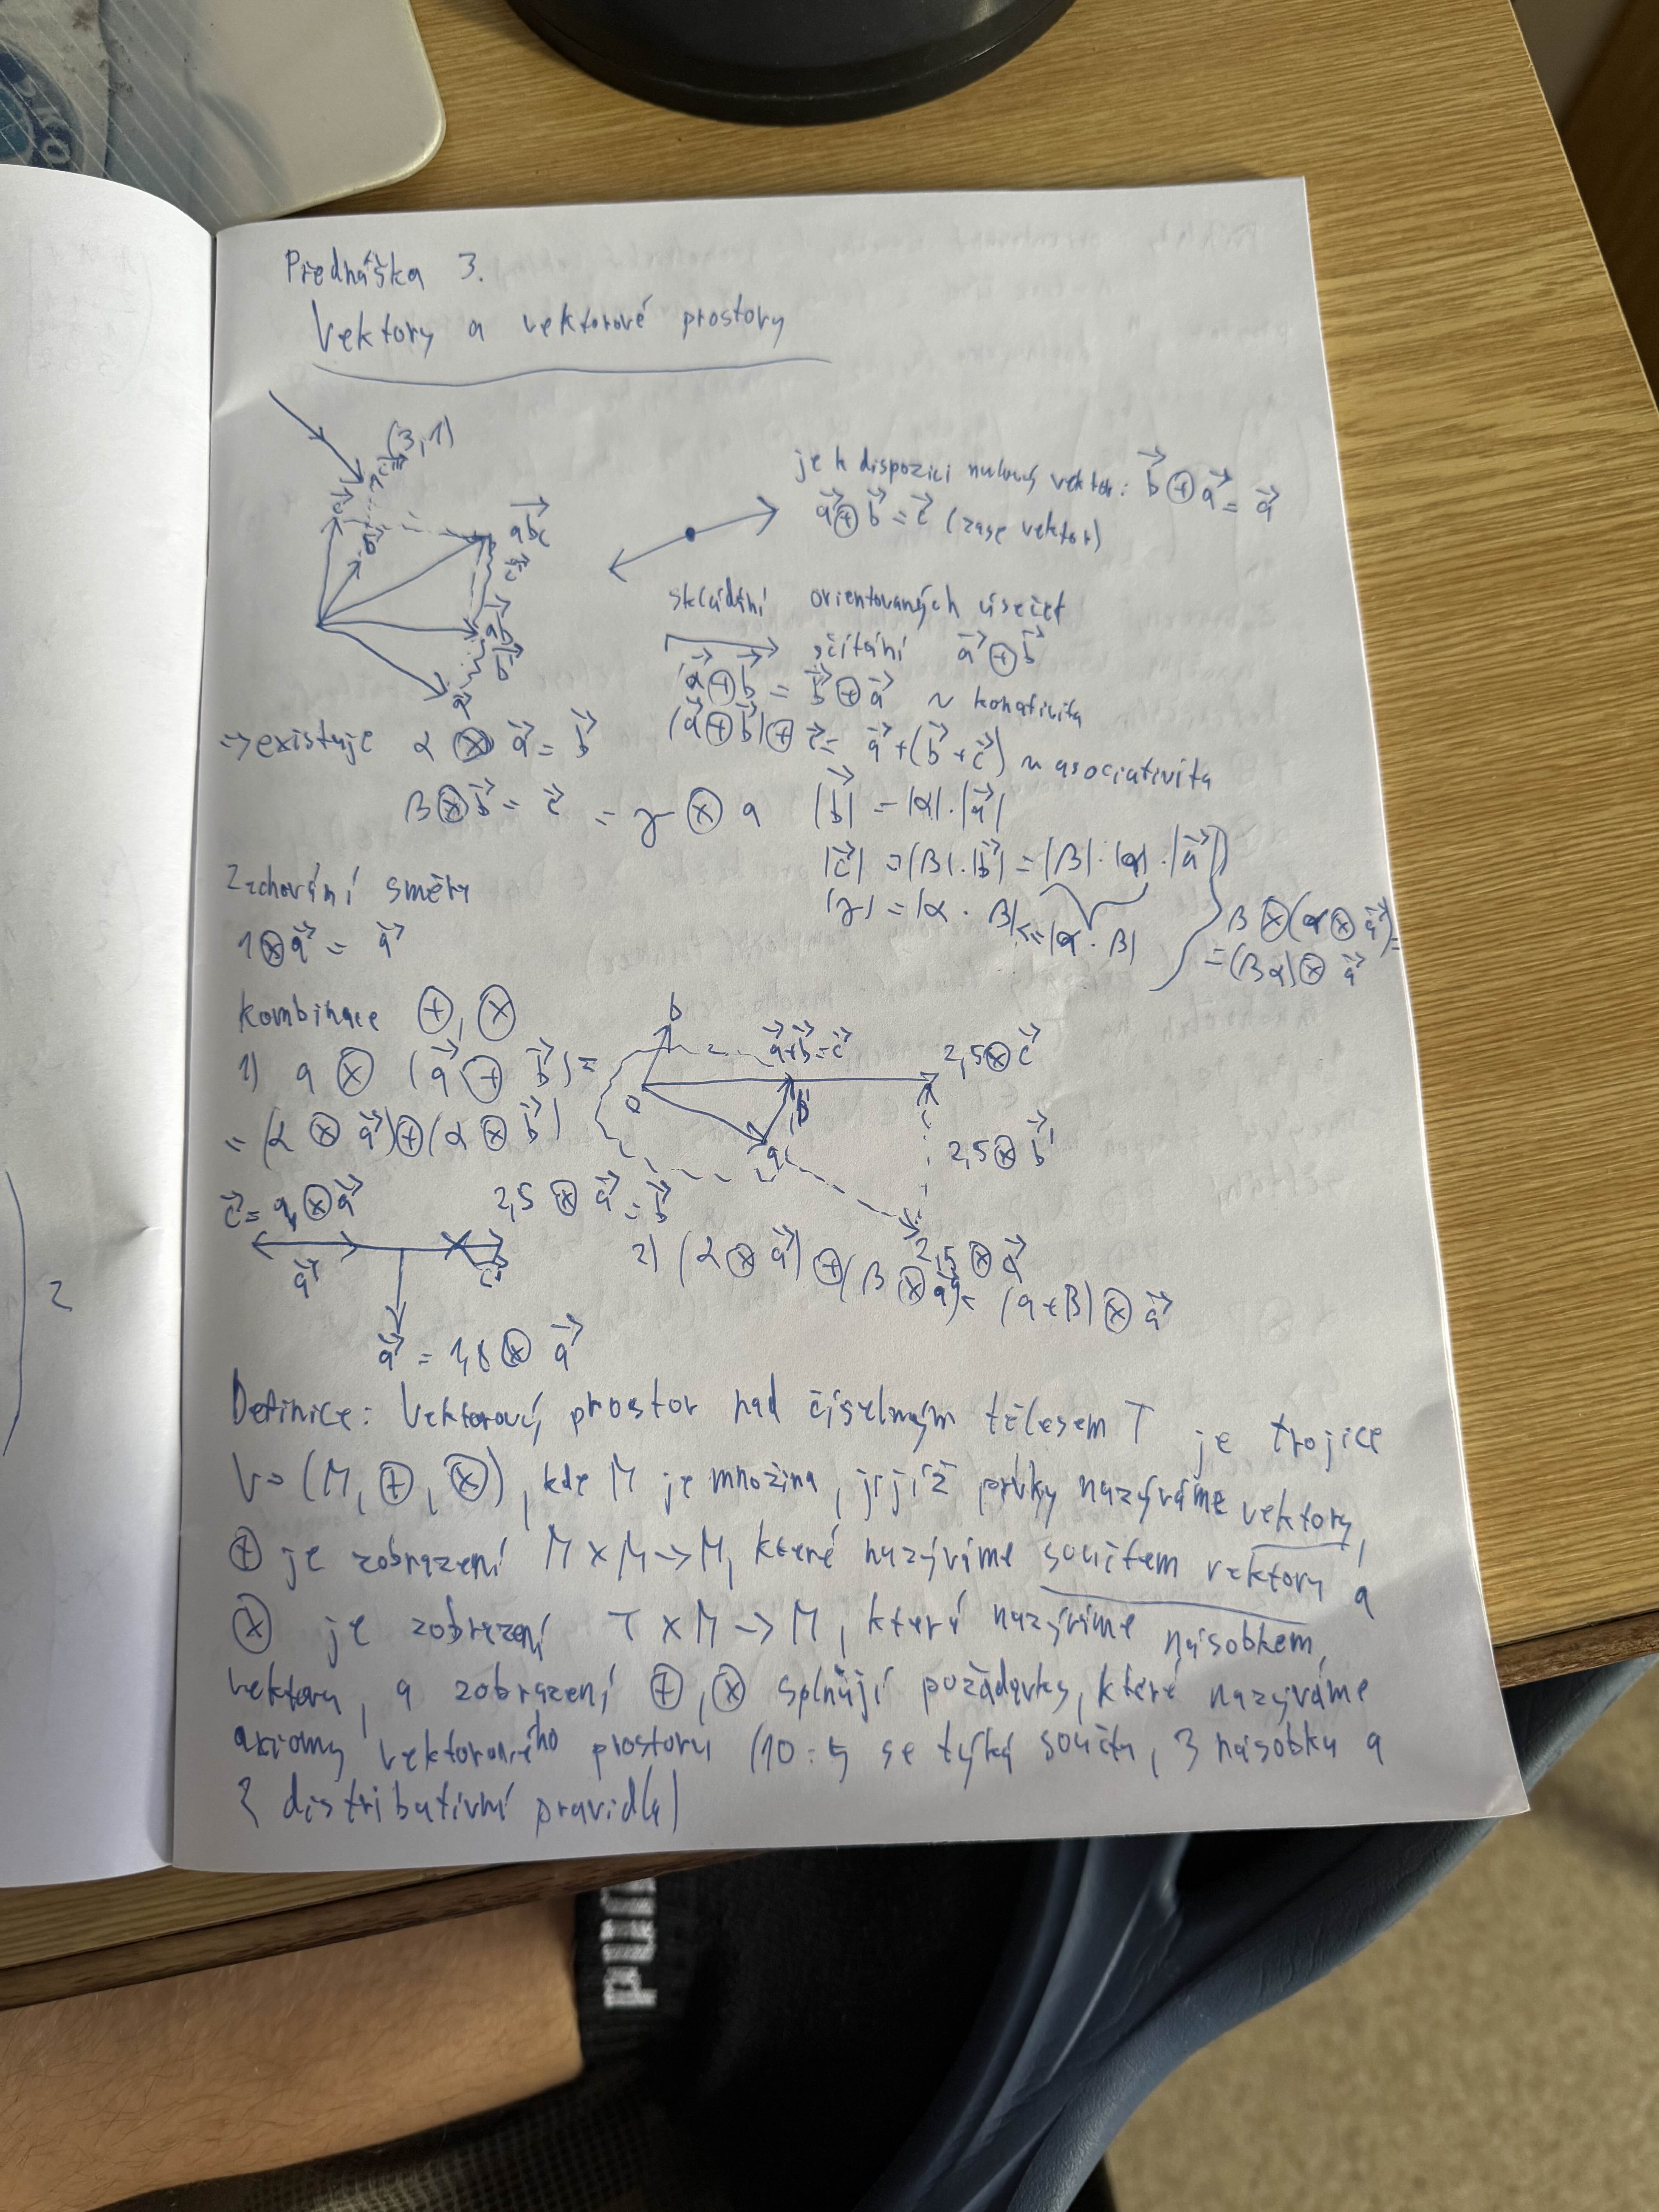 Přednáška 3.
Vektory a vektorové prostory
(3,1)
je k dispozici nulový vektor: b⃗ ⊕ a⃗ = a⃗
a⃗ ⊕ b⃗ = c⃗ (zase vektor)
abc
skládání orientovaných úseček
sčítání a⃗ ⊕ b⃗
a⃗ ⊕ b⃗ = b⃗ ⊕ a⃗ ~ komativita
(a⃗ ⊕ b⃗) ⊕ c⃗ = a⃗ + (b⃗ + c⃗) ~ asociativita
→ existuje α ⊗ a⃗ = b⃗
β ⊗ b⃗ = c⃗ = γ ⊗ a
|b⃗| = |α| · |a⃗|
|c⃗| = |β| · |b⃗| = |β| · |α| · |a⃗|
|γ| = |α · β| <= |α · β|
β ⊗ (α ⊗ a⃗) =
= (βα) ⊗ a⃗
Zachování směru
1 ⊗ a⃗ = a⃗
kombinace ⊕, ⊗
1) a ⊗ (a⃗ ⊕ b⃗) =
= (α ⊗ a⃗) ⊕ (α ⊗ b⃗)
b
o
a⃗ + b⃗ = c⃗
2,5 ⊗ c⃗
b
a
2,5 ⊗ b⃗
2,5 ⊗ a⃗
2,5 ⊗ a⃗ = b⃗
a⃗
2) (α ⊗ a⃗) ⊕ (β ⊗ a⃗) = (a + β) ⊗ a⃗
a⃗ = 1,8 ⊗ a⃗
Definice: Vektorový prostor nad číselným tělesem T je trojice
V = (M, ⊕, ⊗), kde M je množina, jejíž prvky nazýváme vektory,
⊕ je zobrazení M × M → M, které nazýváme součtem vektorů a
⊗ je zobrazení T × M → M, který nazýváme násobkem
vektoru, a zobrazení ⊕, ⊗ splňují požadavky, které nazýváme
axiomy vektorového prostoru (10: 5 se týká součtu, 3 násobku a
2 distributivní pravidla)
2
PUMA